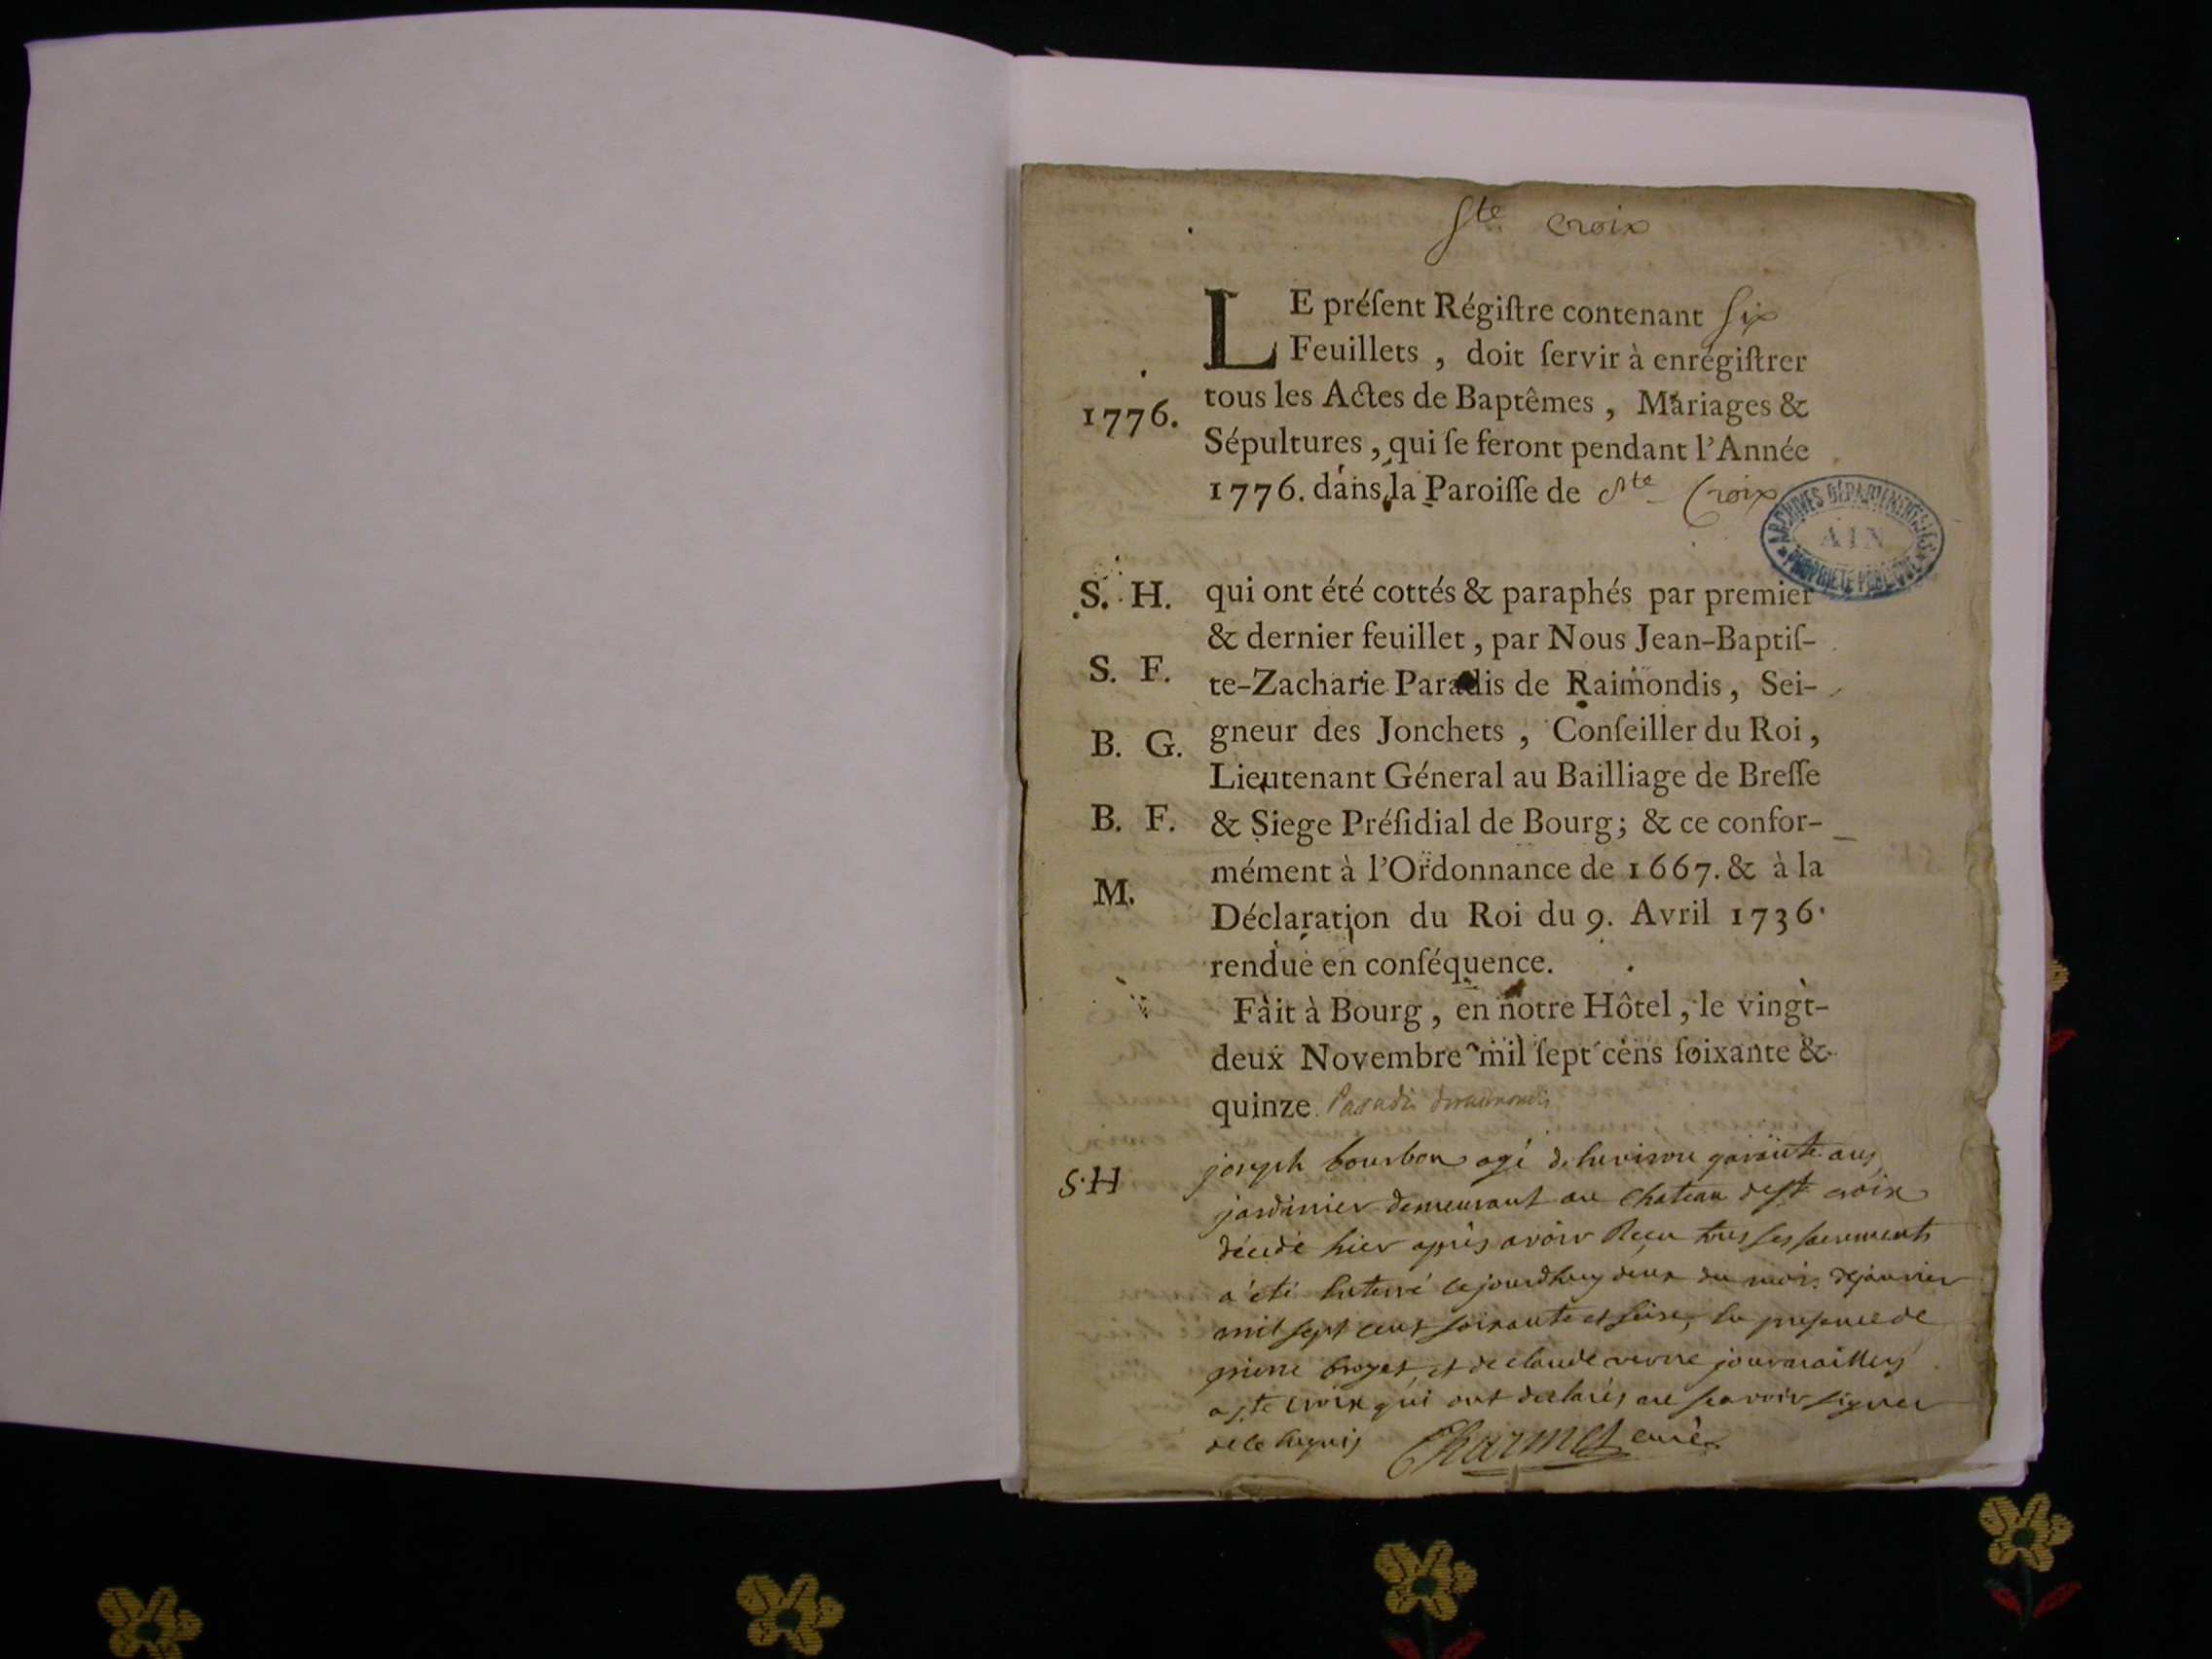 Ste Croix
LE préſent Régiſtre contenant Six
Feuillets , doit ſervir à enrégiſtrer
tous les Actes de Baptêmes , Mariages &
1776.
Sépultures , qui ſe feront pendant l'Année
1776. dans la Paroiſſe de Ste Croix
ARCHIVES DÉPARTEMENTALES
AIN
PROPRIÉTÉ PUBLIQUE
S. H. qui ont été cottés & paraphés par premier
& dernier feuillet , par Nous Jean-Baptiſ-
S. F. te-Zacharie Paradis de Raimondis , Sei-
B. G. gneur des Jonchets , Conſeiller du Roi ,
Lieutenant Géneral au Bailliage de Breſſe
B. F. & Siege Préſidial de Bourg ; & ce confor-
mément à l'Ordonnance de 1667. & à la
M.
Déclaration du Roi du 9. Avril 1736.
rendue en conſéquence.
Fait à Bourg , en notre Hôtel , le vingt-
deux Novembre mil ſept cens ſoixante &
quinze. Paradis deraimondis
S.H joseph bourbon agé denviron
jardinier demeurant au Chateau de ste croix
décédé hier après avoir Reçu tous ses sacrements
a été Enterré cejourdhuy deux du mois de janvier
mil sept cent soixante et seise, En presence de
pierre broyer, et de claude journaillers
a ste croix qui ont declarés ne scavoir signer
de ce Enquis Charmet curé